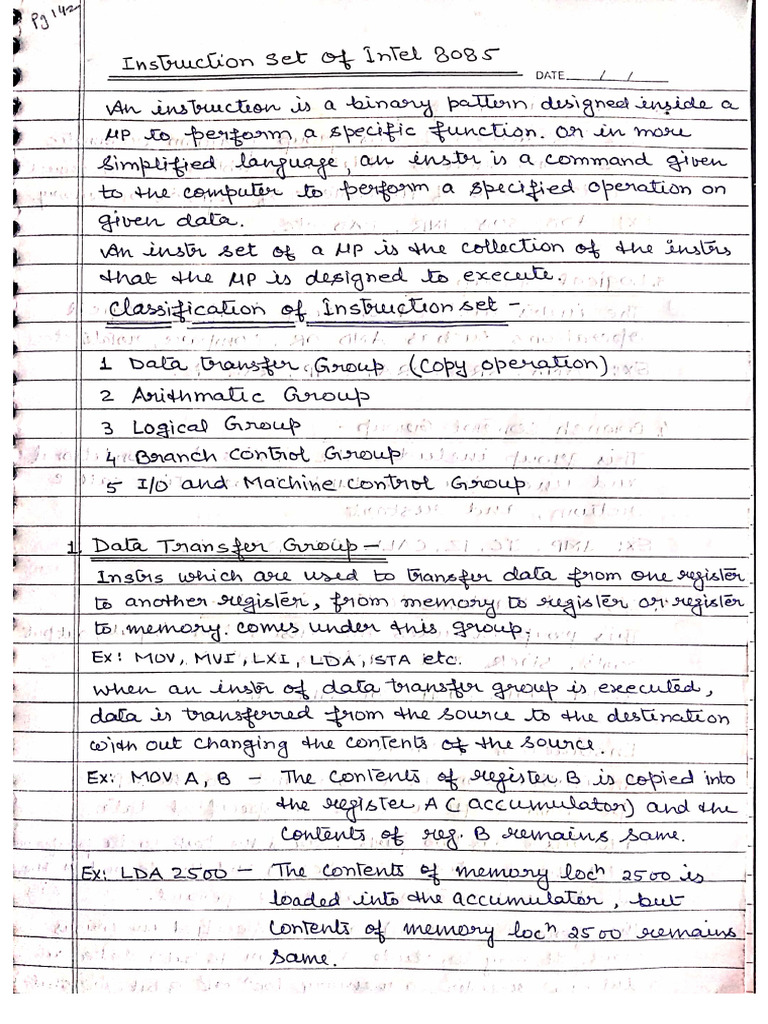 Pg 142
Instruction set of Intel 8085
DATE / /
An instruction is a binary pattern designed inside a
μP to perform a specific function. Or in more
simplified language, an instr is a command given
to the computer to perform a specified operation on
given data.
An instr set of a μP is the collection of the instrs
that the μP is designed to execute.
Classification of Instruction set -
1 Data transfer Group (Copy operation)
2 Arithmatic Group
3 Logical Group
4 Branch control Group
5 I/O and Machine control Group
1. Data Transfer Group -
Instrs which are used to transfer data from one register
to another register, from memory to register or register
to memory. comes under this group.
Ex: MOV, MVI, LXI, LDA, STA etc.
when an instr of data transfer group is executed,
data is transferred from the source to the destination
with out changing the contents of the source.
Ex: MOV A, B - The contents of register B is copied into
the register A (accumulator) and the
contents of reg. B remains same.
Ex: LDA 2500 - The contents of memory locn 2500 is
loaded into the accumulator, but
contents of memory locn 2500 remains
same.